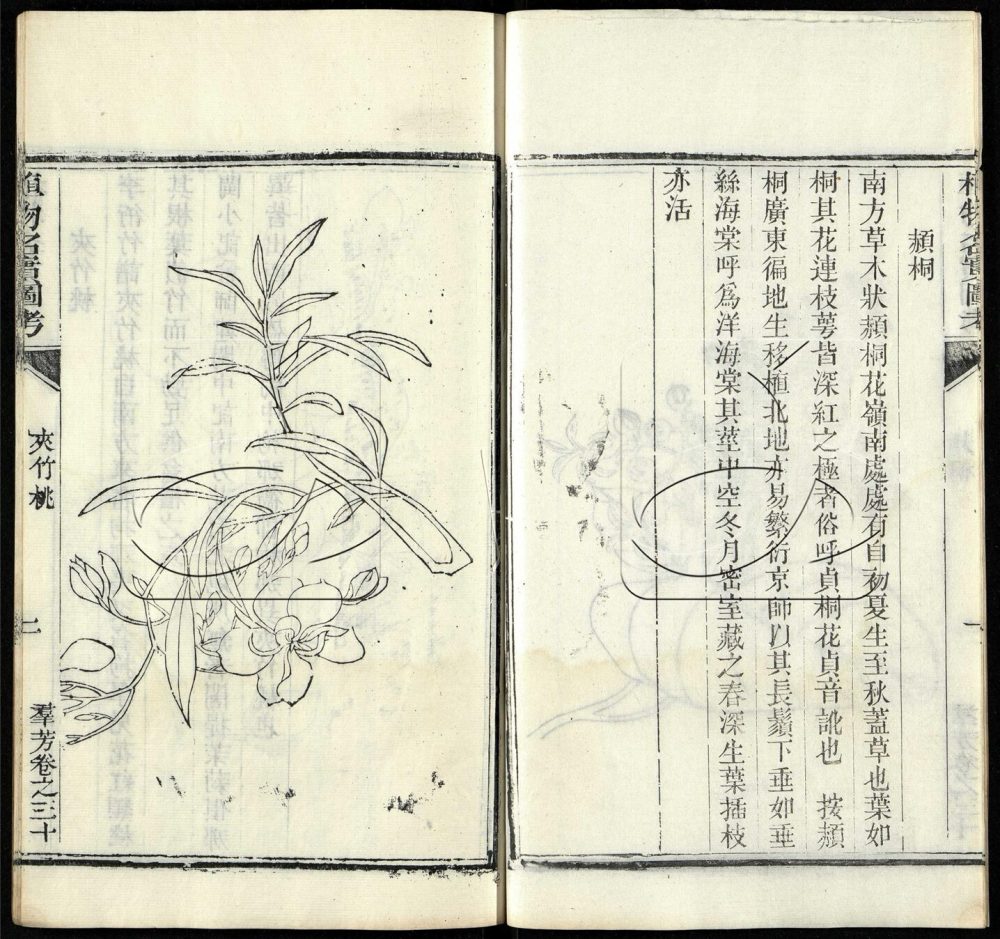 植物名實圖考
一
赬桐
南方草木狀赬桐花嶺南處處有自初夏生至秋蓋草也葉如
桐其花連枝萼皆深紅之極者俗呼貞桐花貞音訛也　按赬
桐廣東徧地生移植北地亦易繁衍京師以其長鬚下垂如垂
絲海棠呼爲洋海棠其莖中空冬月密室藏之春深生葉插枝
亦活
植物名實圖考
夾竹桃
二
羣芳卷之三十